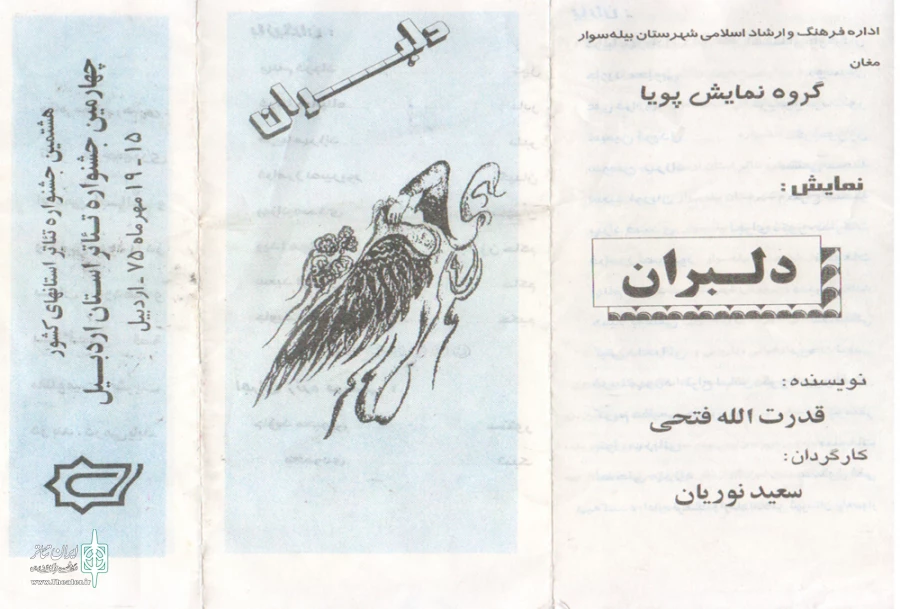 اداره فرهنگ و ارشاد اسلامی شهرستان بیله‌سوار
مغان
گروه نمایش پویا
نمایش:
دلبران
نویسنده:
قدرت الله فتحی
کارگردان:
سعید نوریان
دلبران
هشتمین جشنواره تئاتر استانهای کشور
چهارمین جشنواره تئاتر استان اردبیل
۱۵ - ۱۹ مهرماه ۷۵ - اردبیل
ایران تئاتر
www.Theater.ir